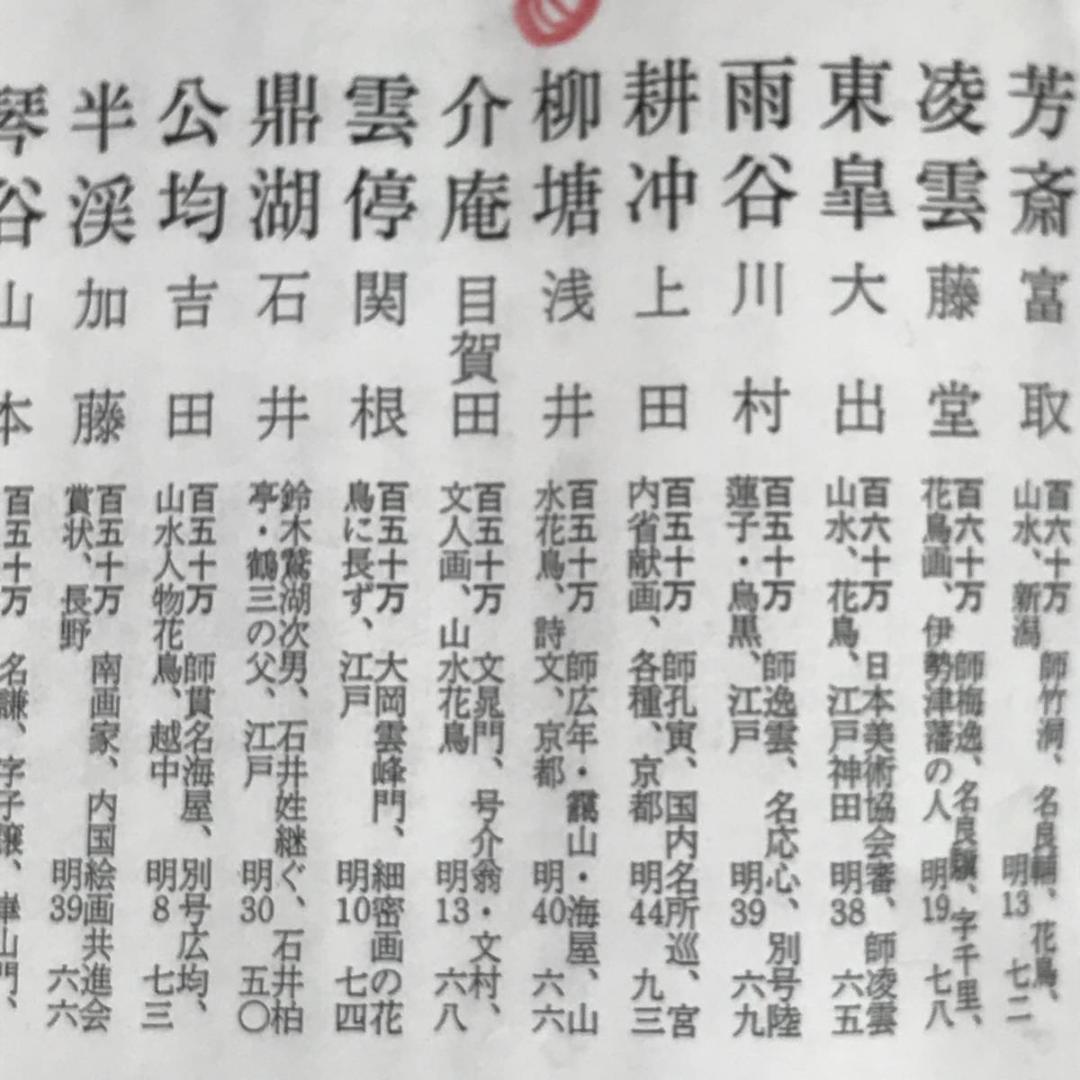 芳斎 富取 百六十万 師竹洞、名良輔、花鳥、
山水、新潟 明13 七二
凌雲 藤堂 百六十万 師梅逸、名良驥、字千里、
花鳥画、伊勢津藩の人 明19 七八
東皐 大出 百六十万 日本美術協会審、師凌雲
山水、花鳥、江戸神田 明38 六五
雨谷 川村 百五十万 師逸雲、名応心、別号陸
蓮子・鳥黒、江戸 明39 六九
耕冲 上田 百五十万 師孔寅、国内名所巡、宮
内省献画、各種、京都 明44 九三
柳塘 浅井 百五十万 師広年・靄山・海屋、山
水花鳥、詩文、京都 明40 六六
介庵 目賀田 百五十万 文晁門、号介翁・文村、
文人画、山水花鳥 明13 六八
雲停 関根 百五十万 大岡雲峰門、細密画の花
鳥に長ず、江戸 明10 七四
鼎湖 石井 鈴木鵞湖次男、石井姓継ぐ、石井柏
亭・鶴三の父、江戸 明30 五〇
公均 吉田 百五十万 師貫名海屋、別号広均、
山水人物花鳥、越中 明8 七三
半渓 加藤 百五十万 南画家、内国絵画共進会
賞状、長野 明39 六六
琴谷 山本 百五十万 名謙、字子譲、崋山門、